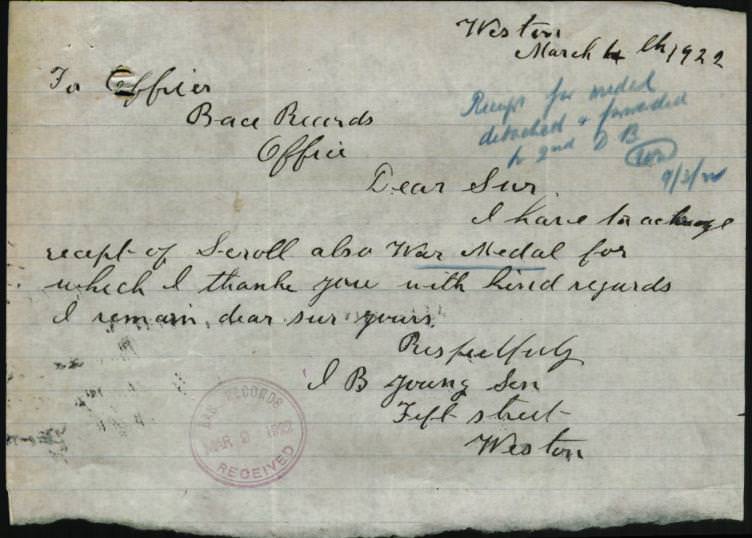 Weston
March 4th 1922
To Officer
Bace Records
Office
Receipt for medal
detached & forwarded
to 2nd D B
9/3/22
Dear Sur
I have to acknoge
recept of Scroll also War Medal for
which I thanke you with kind regards
I remain, dear sur yours,
Respectfuly
J B Young Sen
Fift street
Weston
RECORDS
MAR 9 1922
RECEIVED